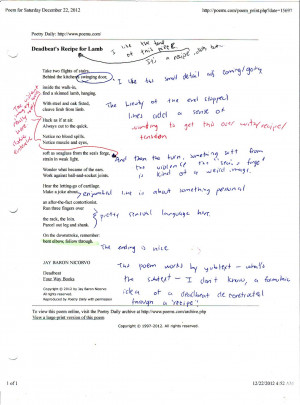 Poem for Saturday December 22, 2012
http://poems.com/poem_print.php?date=15697
Poetry Daily: http://www.poems.com/
I like the
of this
it's a recipe
Deadbeat's Recipe for Lamb
Take two flights of stairs.
Behind the kitchen's swinging door,
I like the small detail of coming/going
inside the walk-in,
find a skinned lamb, hanging.
With steel and oak fisted,
cleave flesh from limb.
The brevity of the end stopped
lines adds a sense of
wanting to get this over with/recipe/
tension
Hack as if at sin:
Always cut to the quick.
Notice no blood spills.
Notice muscle and eyes,
soft as seaglass from the sea's forge,
strain in weak light.
And then the turn, something soft from
the violence but "sea's forge"
is kind of a weird image.
Wonder what became of the ears.
Work against ball-and-socket joints.
Hear the letting-go of cartilage.
Make a joke about
enjambed line is about something personal
an after-the-fact contortionist.
Run three fingers over
the neck, the loin.
Parcel out leg and shank.
pretty sensual language here.
On the downstroke, remember:
beat above, follow through.
The ending is nice
JAY BARON NICORVO
Deadbeat
Four Way Books
The poem works by subtext - what's
the subtext - I don't know, a
idea of a deadbeat demonstrated
through a recipe?
Copyright © 2012 by Jay Baron Nicorvo
All rights reserved.
Reproduced by Poetry Daily with permission
To view this poem online, visit the Poetry Daily archive at http://www.poems.com/archive.php
View a large print version of this poem
Copyright © 1997-2012. All rights reserved.
1 of 1
12/22/2012 4:52 AM